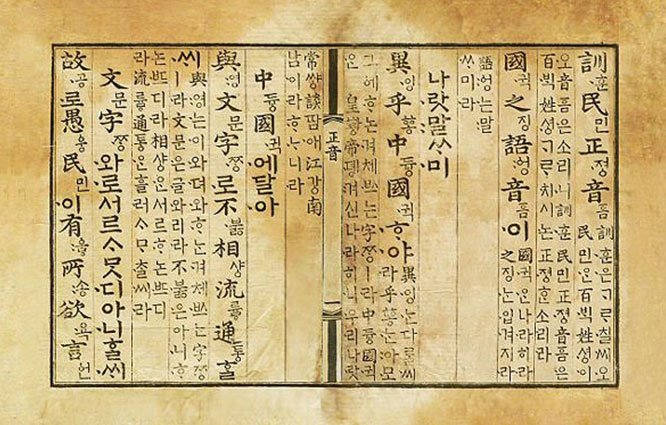 訓훈民민正져ᇰ音ᅙᅳᆷ 訓훈은ᄀᆞᄅᆞ칠씨오
民민ᄋᆞᆫ百ᄇᆡᆨ姓셔ᇰ이
오音ᅙᅳᆷ은소리니訓훈民민正져ᇰ音ᅙᅳᆷ은
百ᄇᆡᆨ姓셔ᇰᄀᆞᄅᆞ치시논正져ᇰᄒᆞᆫ소리라
國귁之징語ᅌᅥᆼ音ᅙᅳᆷ이 國귁ᄋᆞᆫ나라히라
之징ᄂᆞᆫ입겨지라
語ᅌᅥᆼ는말
ᄊᆞ미라
나랏말ᄊᆞ미
異잉乎ᅘᅩᆼ中듀ᇰ國귁ᄒᆞ야 異잉ᄂᆞᆫ다ᄅᆞᆯ씨
라乎ᅘᅩᆼᄂᆞᆫ아모
그ᅌᅦᄒᆞ논겨체ᄡᅳ는字ᄍᆞᆼㅣ라中듀ᇰ國귁
ᄋᆞᆫ皇ᅘᅪᇰ帝뎽겨신나라히니우리나랏
正音
常쌰ᇰ談땀애江가ᇰ南
남이라ᄒᆞᄂᆞ니라
中듀ᇰ國귁에달아
與영文문字ᄍᆞᆼ로不부ᇙ相샤ᇰ流류ᇢ通토ᇰᄒᆞᆯ
ᄊᆡ 與영는이와뎌와ᄒᆞ논겨체ᄡᅳ는字ᄍᆞᆼ
ㅣ라文문은글와리라不부ᇙ은아니ᄒᆞ
논ᄠᅳ디라相샤ᇰᄋᆞᆫ서르ᄒᆞ논ᄠᅳ디
라流류ᇢ通토ᇰᄋᆞᆫ흘러ᄉᆞᄆᆞᄎᆞᆯ씨라
文문字ᄍᆞᆼ와로서르ᄉᆞᄆᆞᆺ디아니ᄒᆞᆯᄊᆡ
故공로愚ᅌᅮᆼ民민이有ᅌᅮᇢ所송欲욕言ᅌᅥᆫ